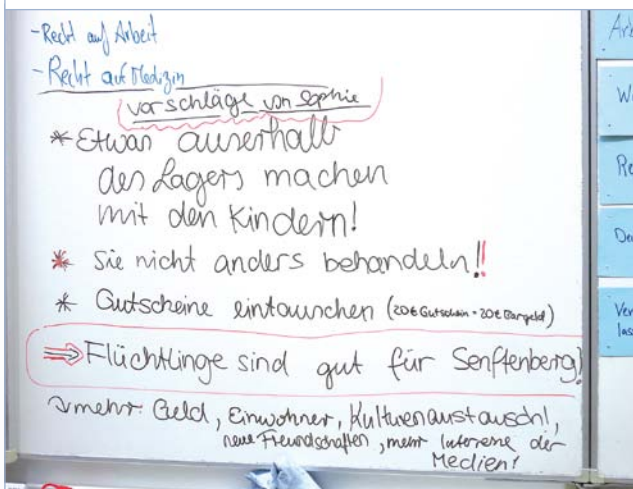 - Recht auf Arbeit
- Recht auf Medizin
Vorschläge von Sophie
* Etwas auserhalb
des Lagers machen
mit den Kindern!
* Sie nicht anders behandeln!!
* Gutscheine eintauschen (20€ Gutschein = 20€ Bargeld)
⇒ Flüchtlinge sind gut für Senftenberg!
↘ mehr Geld, Einwohner, Kulturenaustausch!,
neue Freundschaften, mehr Interesse der
Medien!
Ar
W
Re
De
Ver
las